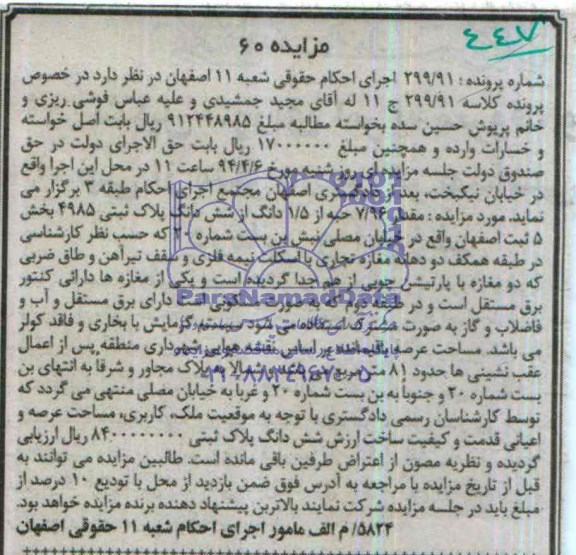 ۴۴۷
مزایده ۶۰
شماره پرونده : ۲۹۹/۹۱ اجرای احکام حقوقی شعبه ۱۱ اصفهان در نظر دارد در خصوص
پرونده کلاسه ۲۹۹/۹۱ ج ۱۱ له آقای مجید جمشیدی و علیه عباس فوشی ریزی و
خانم پریوش حسین سده بخواسته مطالبه مبلغ ۹۱۲۴۴۸۹۸۵ ریال بابت اصل خواسته
و خسارات وارده و همچنین مبلغ ۱۷۰۰۰۰۰۰ ریال بابت حق الاجرای دولت در حق
صندوق دولت جلسه مزایده ای روز شنبه مورخ ۹۴/۴/۶ ساعت ۱۱ در محل این اجرا واقع
در خیابان نیکبخت، بعد از دادگستری اصفهان مجتمع اجرای احکام طبقه ۳ برگزار می
نماید. مورد مزایده : مقدار ۷/۹۶ حبه از ۱/۵ دانگ از شش دانگ پلاک ثبتی ۴۹۸۵ بخش
۵ ثبت اصفهان واقع در خیابان مصلی نبش بن بست شماره ۲۰ که حسب نظر کارشناسی
در طبقه همکف دو دهانه مغازه تجاری با اسکلت نیمه فلزی و سقف تیرآهن و طاق ضربی
که دو مغازه با پارتیشن چوبی از هم جدا گردیده است و یکی از مغازه ها دارائی کنتور
برق مستقل است و در طبقه دارای برق مستقل و آب و
فاضلاب و گاز به صورت مشترک استفاده می شود سیستم گرمایش با بخاری و فاقد کولر
می باشد. مساحت عرصه باقی مانده بر اساس نقشه هوایی شهرداری منطقه پس از اعمال
عقب نشینی ها حدود ۸۱ متر مربع می باشد و شمالا به پلاک مجاور و شرقا به انتهای بن
بست شماره ۲۰ و جنوبا به بن بست شماره ۲۰ و غربا به خیابان مصلی منتهی می گردد که
توسط کارشناسان رسمی دادگستری با توجه به موقعیت ملک، کاربری، مساحت عرصه و
اعیانی قدمت و کیفیت ساخت ارزش شش دانگ پلاک ثبتی ۸۴۰۰۰۰۰۰۰۰ ریال ارزیابی
گردیده و نظریه مصون از اعتراض طرفین باقی مانده است. طالبین مزایده می توانند به
قبل از تاریخ مزایده با مراجعه به آدرس فوق ضمن بازدید از محل با تودیع ۱۰ درصد از
مبلغ باید در جلسه مزایده شرکت نمایند بالاترین پیشنهاد دهنده برنده مزایده خواهد بود.
۵۸۲۴/ م الف مامور اجرای احکام شعبه ۱۱ حقوقی اصفهان
ParsNamadData
۰۲۱-۸۸۳۴۹۶۷۰-۵